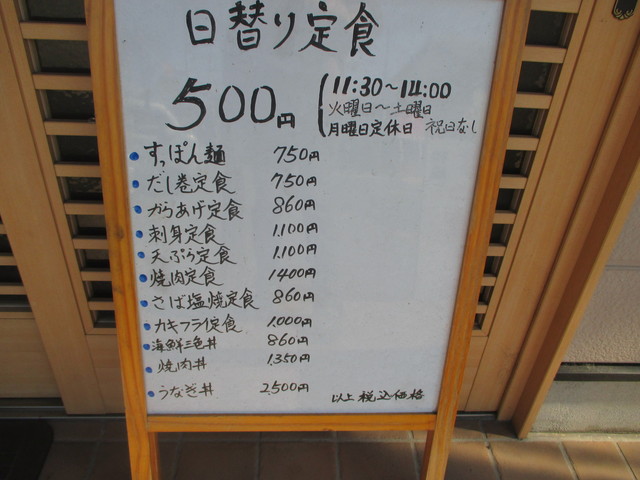 日替り定食
500円 11:30～14:00
火曜日～土曜日
月曜日定休日 祝日なし
すっぽん麺 750円
だし巻定食 750円
からあげ定食 860円
刺身定食 1,100円
天ぷら定食 1,100円
焼肉定食 1400円
さば塩焼定食 860円
カキフライ定食 1,000円
海鮮三色丼 860円
焼肉丼 1,350円
うなぎ丼 2,500円
以上税込価格